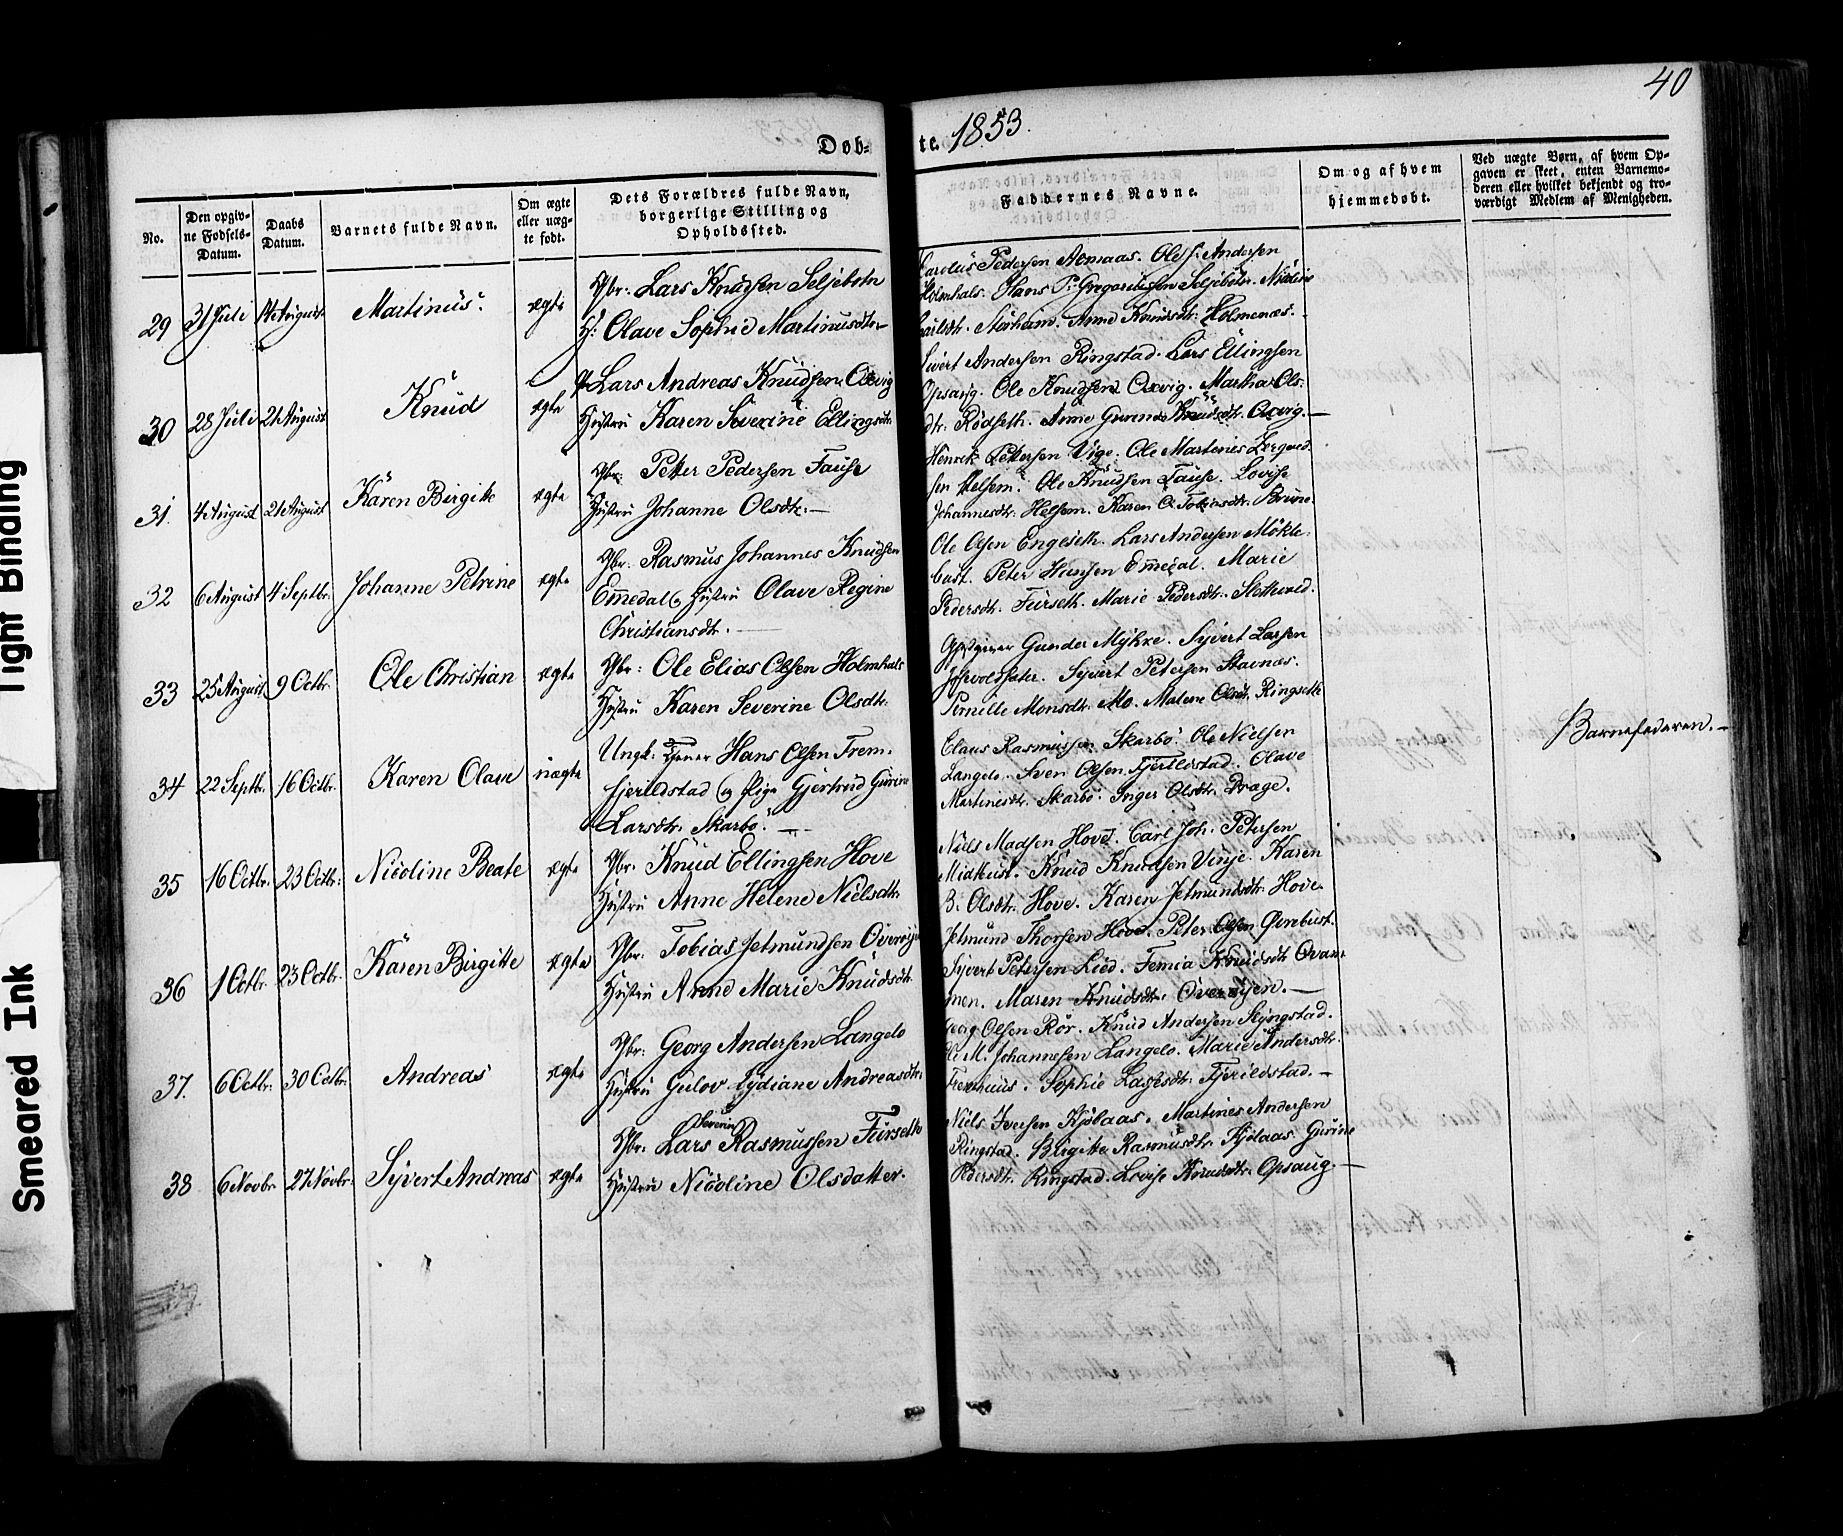 40
Döb-
te. 1853.
No.
Den opgiv-
ne Födsels-
Datum.
Daabs
Datum.
Barnets fulde Navn.
Om ægte
eller uæg-
te födt.
Dets Forældres fulde Navn,
borgerlige Stilling og
Opholdssted.
Faddernes Navne.
Om og af hvem
hjemmedöbt.
Ved uægte Börn, af hvem Op-
gaven er skeet, enten Barnemo-
deren eller hvilket bekjendt og tro-
værdigt Medlem af Menigheden.
29 31 Juli 14 August Martinus. ægte
Gbr: Lars Knudsen Seljebotn
H: Olave Sophie Martinusdtr.
Carolus Pedersen Aamaas. Ole J. Andersen
Holmhals. Hans P. Gregoriussen Seljebotn. Nicoline
Storheim. Anne Knudsdtr. Holmenæs.
30 28 Juli 21 August Knud ægte
Lars Andreas Knudsen Oxvig
Hustru Karen Severine Ellingsdtr.
Sivert Andersen Ringstad. Lars Ellingsen
Opsaug. Ole Knudsen Oxvig. Martha Ols-
dtr. Rödseth. Anne Gurine Knudsdtr. Oxvig.
31. 4 August 21 August Karen Birgitte ægte
Gbr: Petter Pedersen Fause
Hustru Johanne Olsdtr.
Henrik Pettersen Vige. Ole Martinus
sen Helsem. Ole Knudsen Fause. Lovise
Johannesdtr. Helsem. Karen O. Tobiasdtr. Brune.
32 6 August 4 Septbr. Johanne Petrine ægte
Gbr. Rasmus Johannes Knudsen
Emedal og Hustru Olave Regine
Christiansdtr.
Ole Olsen Engeseth. Lars Andersen Mökle-
bust. Peter Hansen Emedal. Marie
Pedersdtr. Furseth. Marie Pedersdtr. Slethvold.
33 25 August 9 Octbr. Ole Christian ægte
Gbr: Ole Elias Olsen Holmhals
Hustru Karen Severine Olsdtr.
Gjestgiver Gunder Myhre. Syvert Larsen
Syvert Petersen Stavnæs.
Pernille Monsdtr. Mo. Malene Olsdtr. Ringseth
34 22 Septbr. 16 Octbr. Karen Olave uægte
Ungk: Tjener Hans Olsen Frem-
fjerildstad og Pige Gjertrud Gurine
Larsdtr. Skarbö.
Claus Rasmussen Skarbö. Ole Nielsen
Langelo. Sven Olsen Fjerildstad. Olave
Martinusdtr. Skarbö. Inger Olsdtr. Drage.
Barnefaderen.
35 16 Octbr. 23 Octbr. Nicoline Beate ægte
Gbr. Knud Ellingsen Hove
Hustru Anne Helene Nielsdtr.
Niels Madsen Hove. Carl Joh. Petersen
Midtbust. Knud Knudsen Vinje. Karen
B. Olsdtr. Hove. Karen Jetmundsdtr. Hove.
36 1 Octbr. 23 Octbr. Karen Birgitte ægte
Gbr. Tobias Jetmundsen Överöye
Hustru Anne Marie Knudsdtr.
Jetmund Thorsen Hove. Peter Olsen Övrebust.
Syvert Petersen Lied. Femia Knudsdtr. Qvam-
men. Maren Knudsdtr. Överöyen.
37. 6 Octbr. 30 Octbr. Andreas ægte
Gbr: Georg Andersen Langelo
Hustru Gulov Lydiane Andreasdtr.
Georg Olsen Rör. Knud Andersen Slyngstad.
Ole M. Johannesen Langelo. Marie Andersdtr.
Sophie Lasesdtr. Fjerildstad.
38 6 Novbr. 27 Novbr. Syvert Andreas ægte
Severin
Gbr. Lars Rasmussen Furseth
Hustru Nicoline Olsdatter.
Niels Iversen Kjölaas. Martinus Andersen
Ringstad. Birgitte Rasmusdtr. Kjölaas. Gurine
Pedersdtr. Ringstad. Lovise Knudsdtr. Opsaug.
Tight Binding
Smeared Ink